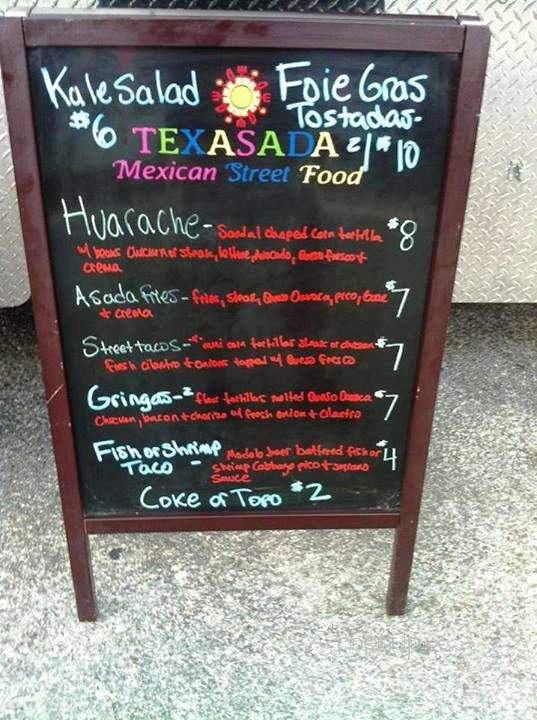 Kale Salad
$6
Foie Gras
Tostadas-
2/$10
TEXASADA
Mexican Street Food
Huarache- Sandal shaped corn tortilla $8
w/ beans Chicken or steak, lettuce, Avocado, Queso fresco +
crema
Asada Fries- fries, steak, Queso Oaxaca, pico, $7
+ crema
Street tacos- corn tortillas steak or chicken $7
Fresh cilantro + onions topped w/ Queso Fresco
Gringas- 2 flour tortillas melted Queso Oaxaca $7
Chicken, bacon + chorizo w/ fresh onion + cilantro
Fish or Shrimp
Taco -
Modelo beer battered fish or $4
shrimp Cabbage pico + serrano
sauce
Coke or Topo $2